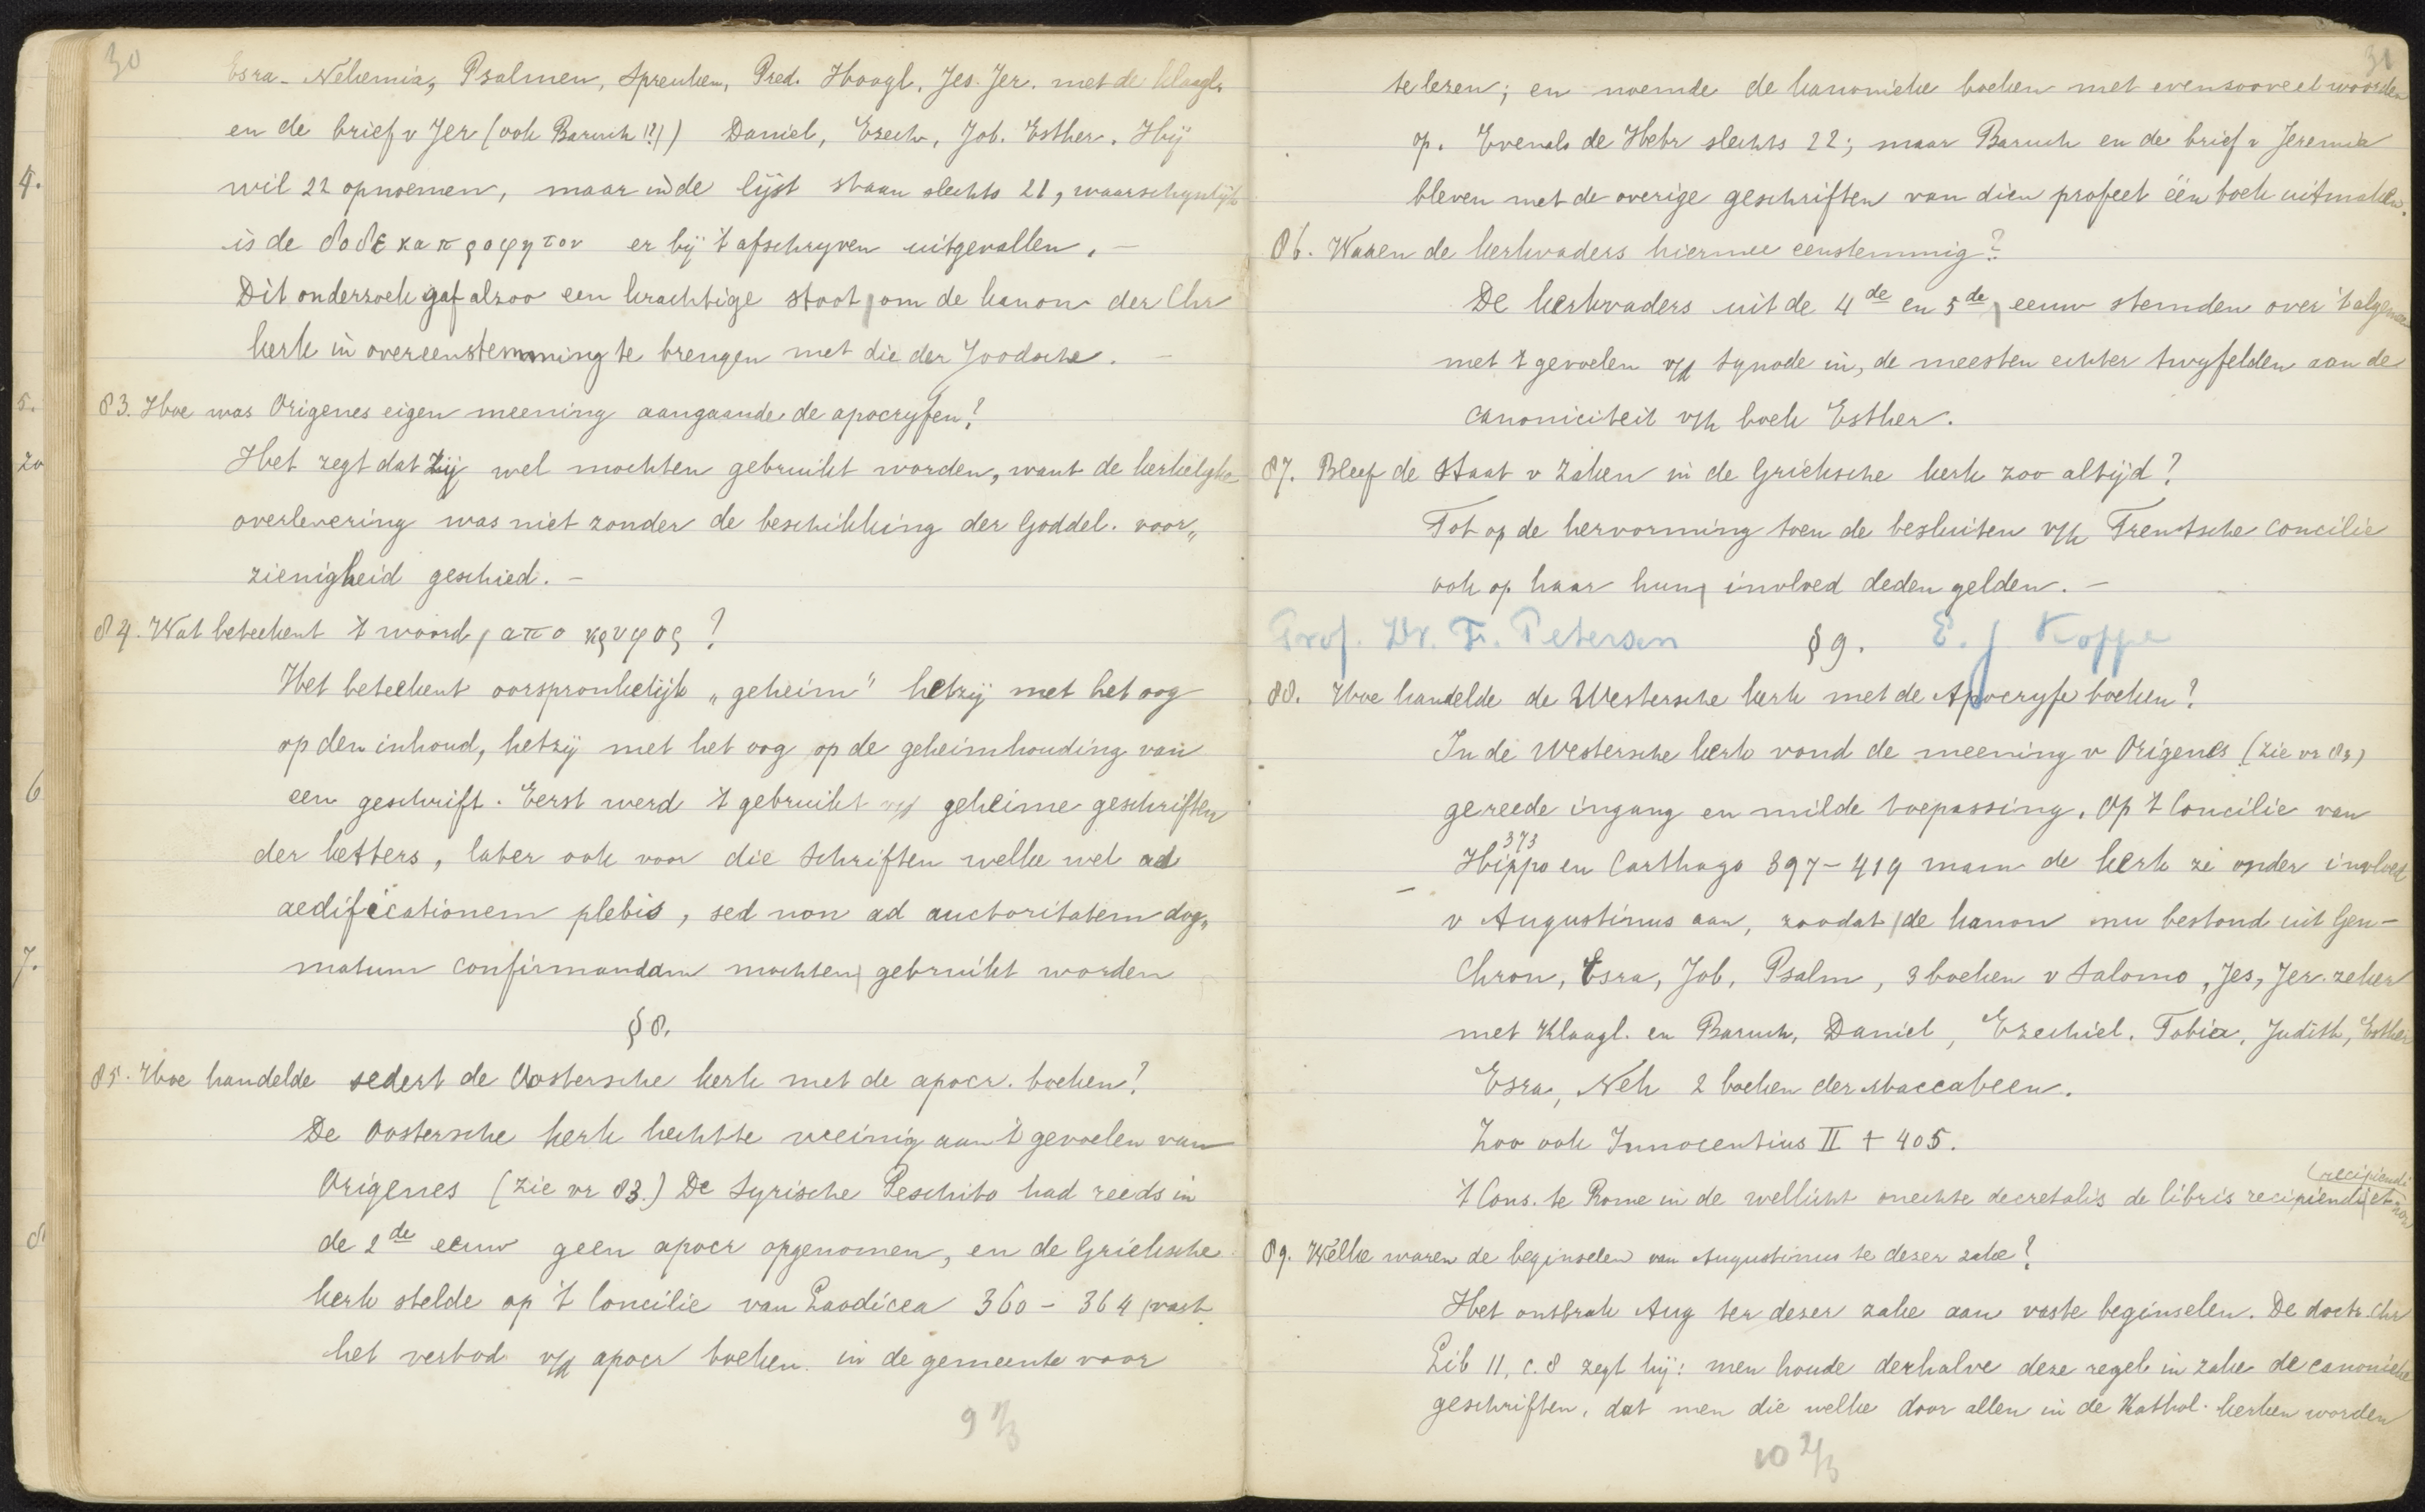 30
Esra - Nehemia, Psalmen, Spreuken, Pred. Hoogl, Jes. Jer. met de klaagl.
en de brief v Jer (ook Baruch!?!) Daniel, Ezech, Job. Esther. Hij
wil 22 opnoemen, maar in de lijst staan slechts 21, waarschynlijk
is de δοδεκαπροφητον er bij 't afschryven uitgevallen. —
Dit onderzoek gaf alzoo een krachtige stoot om de kanon der Chr
kerk in overeenstemming te brengen met die der Joodsche. —
83. Hoe was Origenes eigen meening aangaande de apocryfen?
Het zegt dat zij wel mochten gebruikt worden, want de kerkelyke
overlevering was niet zonder de beschikking der Goddel. voor„
zienigheid geschied. —
84. Wat beteekent 't woord, απο κρυφος ?
Het beteekent oorspronkelijk „geheim" hetzij met het oog
op den inhoud, hetzij met het oog op de geheimhouding van
een geschrift. Eerst werd 't gebruikt v/d geheime geschriften
der ketters, later ook voor die schriften welke wel ad
aedificationem plebis, sed non ad auctoritatem dog„
matum confirmandam mochten gebruikt worden
§ 8.
85. Hoe handelde sedert de Oostersche kerk met de apocr. boeken?
De Oostersche kerk hechtte weinig aan 't gevoelen van
Origenes (zie vr 83.) De Syrische Peschito had reeds in
de 2de eeuw geen apocr opgenomen, en de Grieksche
kerk stelde op 't Concilie van Laodicea 360 - 364 vast
het verbod v/d apocr boeken in de gemeente voor
9 2/3
4.
5.
zo
6
7.
8
31
te lezen; en noemde de kanonieke boeken met evenzooveel woorden
op. Evenals de Hebr slechts 22; maar Baruch en de brief v Jeremia
bleven met de overige geschriften van dien profeet één boek uitmaken.
86. Waren de kerkvaders hiermee eenstemmig?
De kerkvaders uit de 4de en 5de eeuw stemden over 't algemeen
met 't gevoelen v/d synode in, de meesten echter twyfelden aan de
canoniciteit v/h boek Esther.
87. Bleef de staat v zaken in de Grieksche kerk zoo altijd?
Tot op de hervorming toen de besluiten v/h Trentsche concilie
ook op haar hun invloed deden gelden. —
Prof. Dr. Fr. Petersen § 9. E. J Koppe
88. Hoe handelde de Westersche kerk met de Apocryfe boeken?
In de Westersche kerk vond de meening v Origenes (zie vr 83)
gereede ingang en milde toepassing. Op 't Concilie van
373
Hippo en Carthago 397 - 419 nam de kerk ze onder invloed
v Augustinus aan, zoodat de kanon nu bestond uit Gen -
Chron, Esra, Job, Psalm, 3 boeken v Salomo, Jes, Jer. zeker
met Klaagl. en Baruch, Daniel, Ezechiel. Tobia, Judith, Esther
Esra, Neh 2 boeken der Maccabeen.
Zoo ook Innocentius II + 405.
(recipiendi
't Cons. te Rome in de wellicht onechte decretalis de libris recipiendi et non
89. Welke waren de beginselen van Augustinus te dezer zake?
Het ontbrak Aug ter dezer zake aan vaste beginselen. De doctr. Chr
Lib 11, c. 8 zegt hij: men houde derhalve deze regel in zake de canonieke
geschriften, dat men die welke door allen in de Kathol. kerken worden
10 2/3